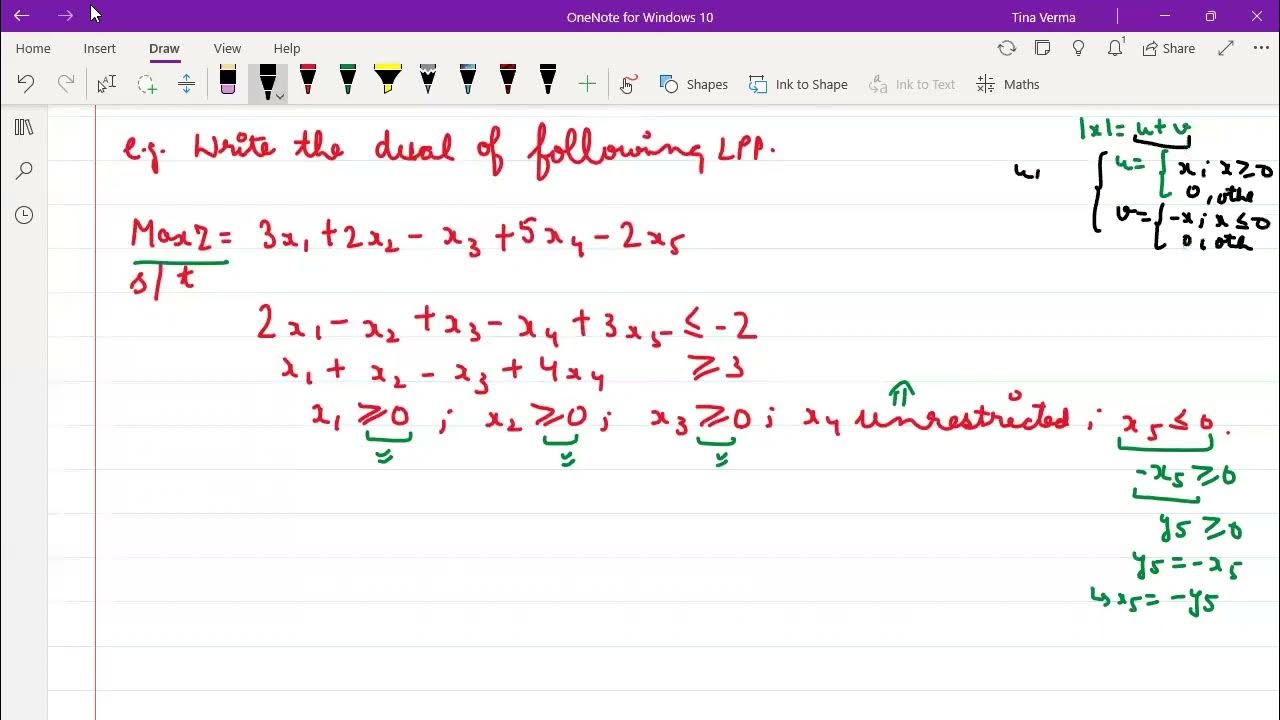 OneNote for Windows 10
Tina Verma
Home Insert Draw View Help
1
Share
Shapes
Ink to Shape
Ink to Text
Maths
e.g. Write the dual of following LPP.
Max Z = 3x₁ + 2x₂ - x₃ + 5x₄ - 2x₅
s/t
2x₁ - x₂ + x₃ - x₄ + 3x₅ ≤ -2
x₁ + x₂ - x₃ + 4x₄ ≥ 3
x₁ ≥ 0 ; x₂ ≥ 0 ; x₃ ≥ 0 ; x₄ unrestricted ; x₅ ≤ 0 .
-x₅ ≥ 0
y₅ ≥ 0
y₅ = -x₅
↳ x₅ = -y₅
|x| = u + v
u = { x ; x ≥ 0
0 , othe
v = { -x ; x ≤ 0
0 ; oth